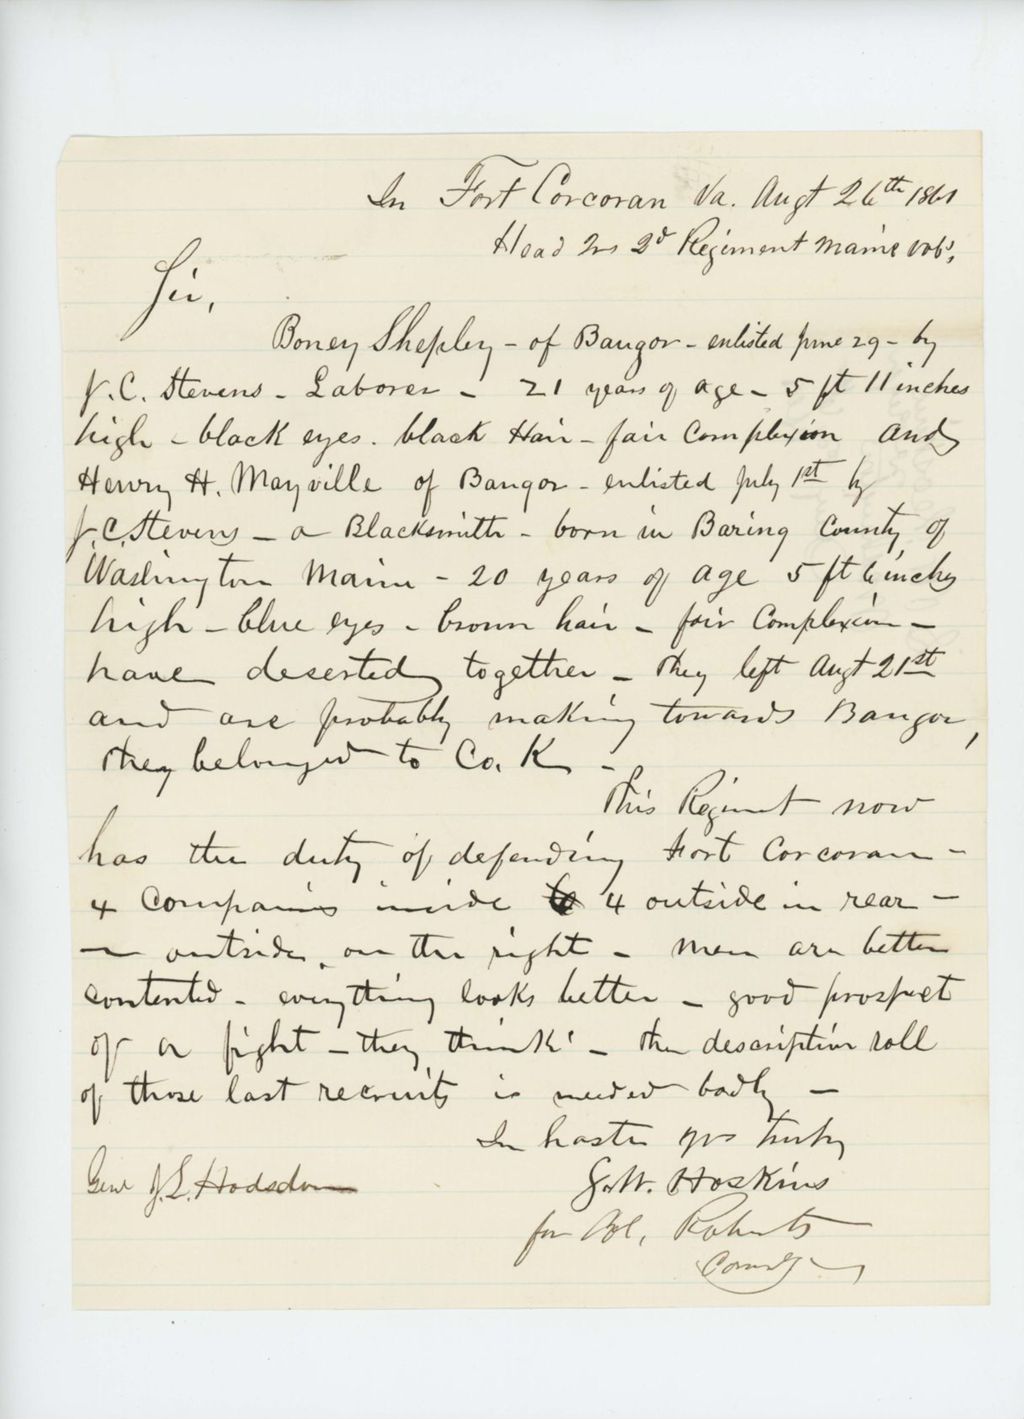 In Fort Corcoran Va. Augt 26th 1861
Head Qrs 2d Regiment Maine Vols,
Sir,
Boney Shepley - of Bangor - enlisted June 29 - by
J. C. Stevens - Laborer - 21 years of age - 5 ft 11 inches
high - black eyes - black Hair - fair Complexion and
Henry H. Mayville of Bangor - enlisted July 1st by
J. C. Stevens - a Blacksmith - born in Baring County of
Washington Maine - 20 years of age 5 ft 6 inches
high - blue eyes - brown hair - fair Complexion -
have deserted together - They left Augt 21st
and are probably making towards Bangor,
They belonged to Co. K -
This Regiment now
has the duty of defending Fort Corcoran -
4 Companies inside 4 outside in rear -
outside, on the right - men are better
contented - everything looks better - good prospect
of a fight - they think! - the descriptive roll
of those last recruits is needed badly -
In haste yrs truly
Genl J. L. Hodsdon
G. W. Hoskins
for Col, Roberts
Comdg